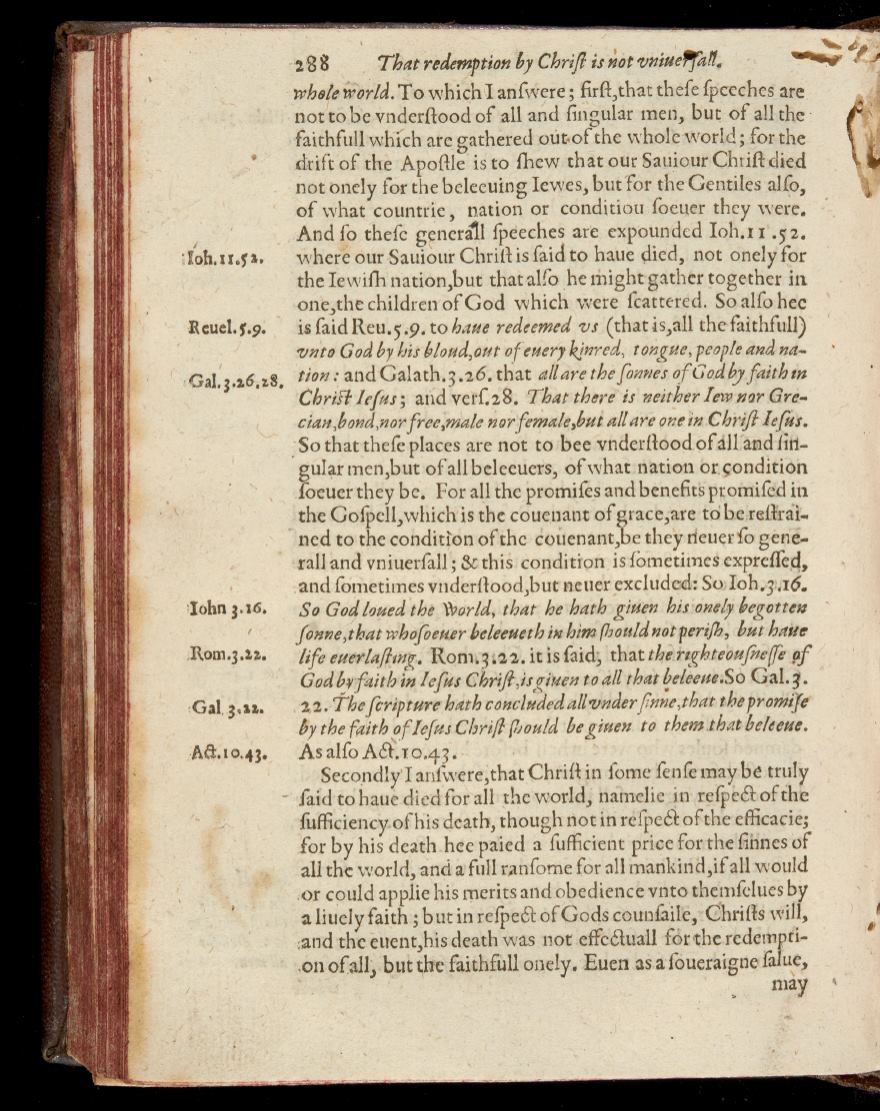 288 That redemption by Chriſt is not vniuerſall.
whole world. To which I anſwere; firſt,that theſe ſpeeches are
not to be vnderſtood of all and ſingular men, but of all the
faithfull which are gathered out of the whole world; for the
drift of the Apoſtle is to ſhew that our Sauiour Chriſt died
not onely for the beleeuing Iewes, but for the Gentiles alſo,
of what countrie, nation or conditiou ſoeuer they were.
And ſo theſe generall ſpeeches are expounded Ioh.11.52.
Ioh.11.52.
where our Sauiour Chriſt is ſaid to haue died, not onely for
the Iewiſh nation,but that alſo he might gather together in
one,the children of God which were ſcattered. So alſo hee
Reuel.5.9.
is ſaid Reu.5.9. to haue redeemed vs (that is,all the faithfull)
vnto God by his bloud,out of euery kinred, tongue, people and na-
Gal.3.26,28.
tion: and Galath.3.26. that all are the ſonnes of God by faith in
Chriſt Ieſus; and verſ.28. That there is neither Iew nor Gre-
cian,bond,nor free,male nor female,but all are one in Chriſt Ieſus.
So that theſe places are not to bee vnderſtood of all and ſin-
gular men,but of all beleeuers, of what nation or condition
ſoeuer they be. For all the promiſes and benefits promiſed in
the Goſpell,which is the couenant of grace,are to be reſtrai-
ned to the condition of the couenant,be they neuer ſo gene-
rall and vniuerſall; & this condition is ſometimes expreſſed,
and ſometimes vnderſtood,but neuer excluded: So Ioh.3.16.
Iohn 3.16.
So God loued the World, that he hath giuen his onely begotten
ſonne,that whoſoeuer beleeueth in him ſhould not periſh, but haue
Rom.3.22.
life euerlaſting. Rom.3.22. it is ſaid, that the righteouſneſſe of
God by faith in Ieſus Chriſt,is giuen to all that beleeue.So Gal.3.
Gal.3.22.
22. The ſcripture hath concluded all vnder ſinne,that the promiſe
by the faith of Ieſus Chriſt ſhould be giuen to them that beleeue.
Act.10.43.
As alſo Act.10.43.
Secondly I anſwere,that Chriſt in ſome ſenſe may be truly
ſaid to haue died for all the world, namelie in reſpect of the
ſufficiency of his death, though not in reſpect of the efficacie;
for by his death hee paied a ſufficient price for the ſinnes of
all the world, and a full ranſome for all mankind,if all would
or could applie his merits and obedience vnto themſelues by
a liuely faith; but in reſpect of Gods counſaile, Chriſts will,
and the euent,his death was not effectuall for the redempti-
on of all, but the faithfull onely. Euen as a ſoueraigne ſalue,
may